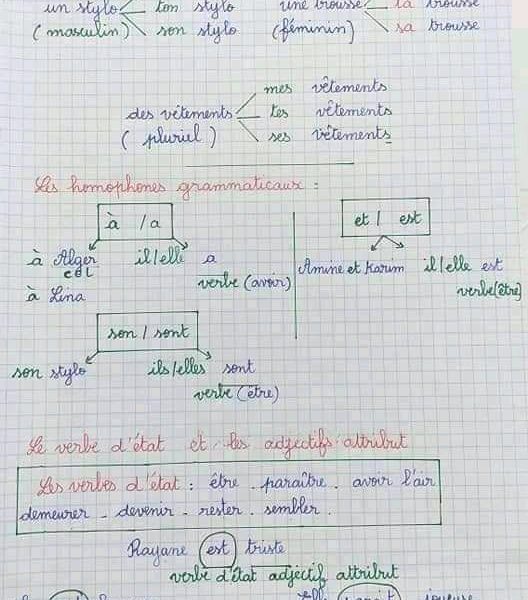 un stylo ton stylo une trousse ta trousse
(masculin) son stylo (féminin) sa trousse
mes vêtements
des vêtements tes vêtements
(pluriel) ses vêtements
Les homophones grammaticaux :
à / a et / est
à Alger il/elle a Amine et Karim il/elle est
CDL verbe (avoir) verbe (être)
à Lina
son / sont
son stylo ils/elles sont
verbe (être)
Le verbe d'état et les adjectifs attribut
Les verbes d'état : être - paraître - avoir l'air
demeurer - devenir - rester - sembler.
Rayane est triste
verbe d'état adjectif attribut